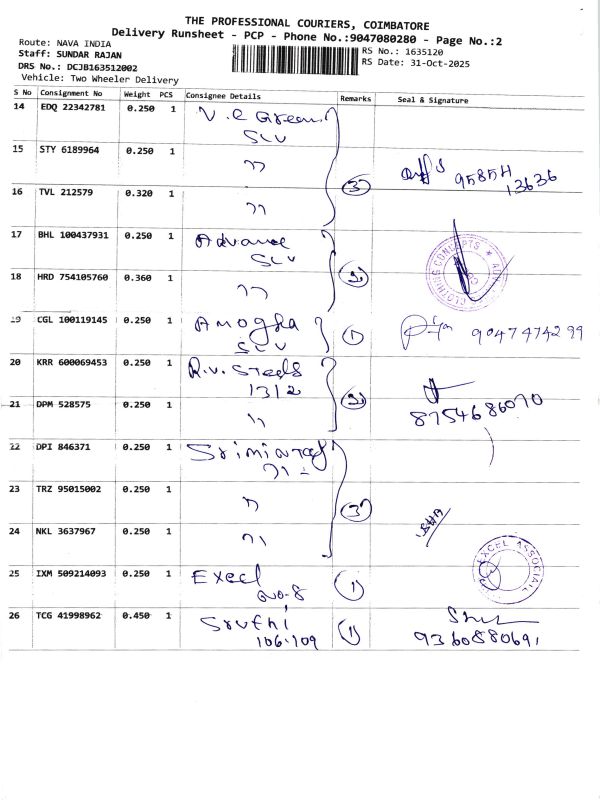 THE PROFESSIONAL COURIERS, COIMBATORE
Delivery Runsheet - PCP - Phone No.:9047080280 - Page No.:2
Route: NAVA INDIA
Staff: SUNDAR RAJAN
DRS No.: DCJB163512002
Vehicle: Two Wheeler Delivery
RS No.: 1635120
RS Date: 31-Oct-2025
S No Consignment No Weight PCS Consignee Details Remarks Seal & Signature
14 EDQ 22342781 0.250 1 V.C Green
SLV
15 STY 6189964 0.250 1 "
16 TVL 212579 0.320 1 "
3
95854
13636
17 BHL 100437931 0.250 1 Advance
SLV
18 HRD 754105760 0.360 1 "
2
CLOTHING CONCEPTS
19 CGL 100119145 0.250 1 Amogha 1 9047474299
SLV
20 KRR 600069453 0.250 1 R.V. Steels
1312
21 DPM 528575 0.250 1 "
2
8754686070
22 DPI 846371 0.250 1
23 TRZ 95015002 0.250 1 "
24 NKL 3637967 0.250 1 "
3
25 IXM 509214093 0.250 1 Excel 1
No-8
EXCEL ASSOCIATE
26 TCG 41998962 0.450 1 Sruthi 1
106.109
9360880691